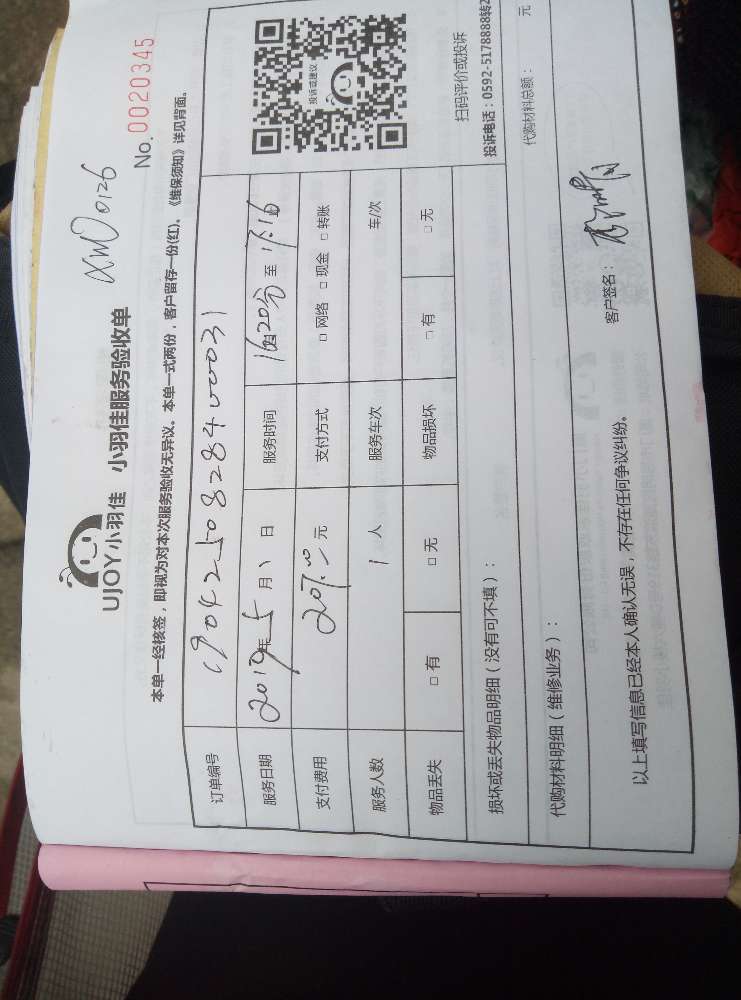 UJOY小羽佳 小羽佳服务验收单 XM00126
本单一经核签，即视为对本次服务验收无异议。本单一式两份，客户留存一份(红)。《维保须知》详见背面。
No. 0020345
订单编号 1904250828400031
服务日期 2019年5月1日 服务时间 16时20分至17:16
支付费用 207.00元 支付方式 □ 网络 □ 现金 □ 转账
服务人数 1人 服务车次 车/次
物品丢失 □ 有 □ 无 物品损坏 □ 有 □ 无
投诉或建议
扫码评价或投诉
投诉电话：0592-5178888转2
损坏或丢失物品明细（没有可不填）：
代购材料明细（维修业务）： 代购材料总额： 元
以上填写信息已经本人确认无误，不存在任何争议纠纷。 客户签名：